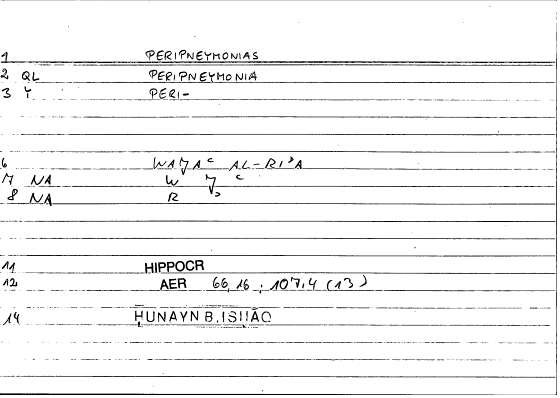 1 PERIPNEYMONIAS
2 QL PERIPNEYMONIA
3 Y PERI-
6 WAJAC AL-RI'A
7 NA W J C
8 NA R
11 HIPPOCR
12 AER 66,16 ; 107,4 (13)
14 ḤUNAYN B. ISḤĀQ